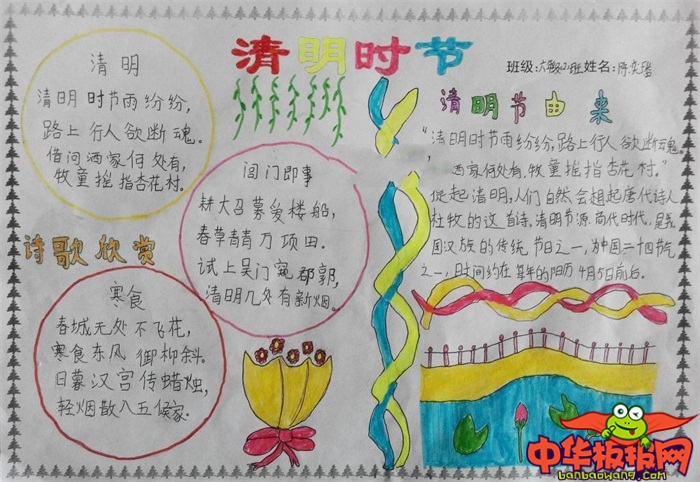 清明时节
班级:六年级(2)班姓名:
清明
清明时节雨纷纷,
路上行人欲断魂。
借问酒家何处有,
牧童摇指杏花村。
诗歌欣赏
闾门即事
耕大召募爱楼船,
春草青青万项田.
试上吴门冤郡郭,
清明几处有新烟.
寒食
春城无处不飞花,
寒食东风御柳斜.
日暮汉宫传蜡烛,
轻烟散入五侯家.
清明节由来
"清明时节雨纷纷,路上行人欲断魂。
酒家何处有,牧童摇指杏花村."
提起清明,人们自然会想起唐代诗人
杜牧的这首诗.清明节源商代时代,是我
国汉族的传统节日之一,为中国二十四节气
之一,时间约在每年的阳历4月5日前后.
中华板报网
banbaowang.com